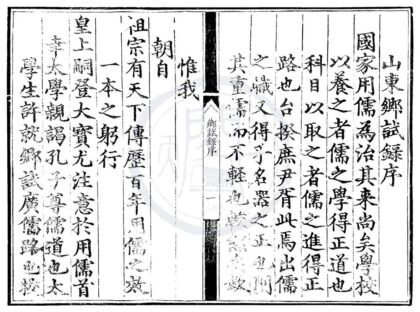 山東鄉試錄序
國家用儒為治其來尚矣學校
以養之者儒之學得正道也
科目以取之者儒之進得正
路也台揆庶尹胥此焉出儒
之職又得乎名器之正也門
其重儒而不輕也
鄉試錄序
一
惟我
朝自
祖宗有天下傳歷百年用儒之效
一本之躬行
皇上嗣登大寶尤注意於用儒首
幸太學親謁孔子尊儒道也太
學生許就鄉試廣儒路也校